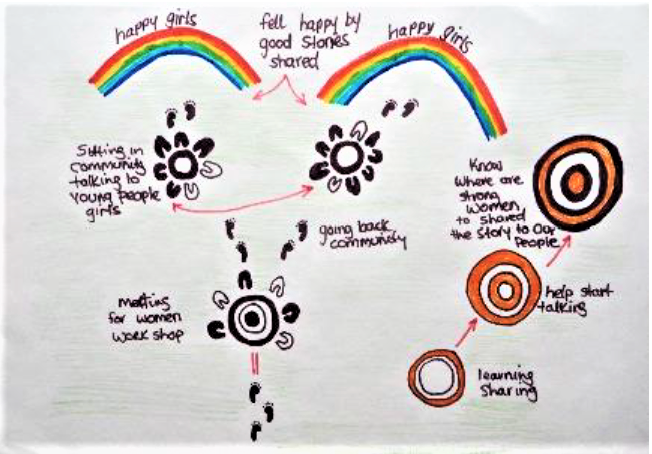 happy girls
fell happy by
good stories
shared
happy girls
Sitting in
community
talking to
young people
girls
Know
where are
strong
women
to shared
the story to our
people
going back
community
meeting
for women
workshop
help start
talking
learning
sharing